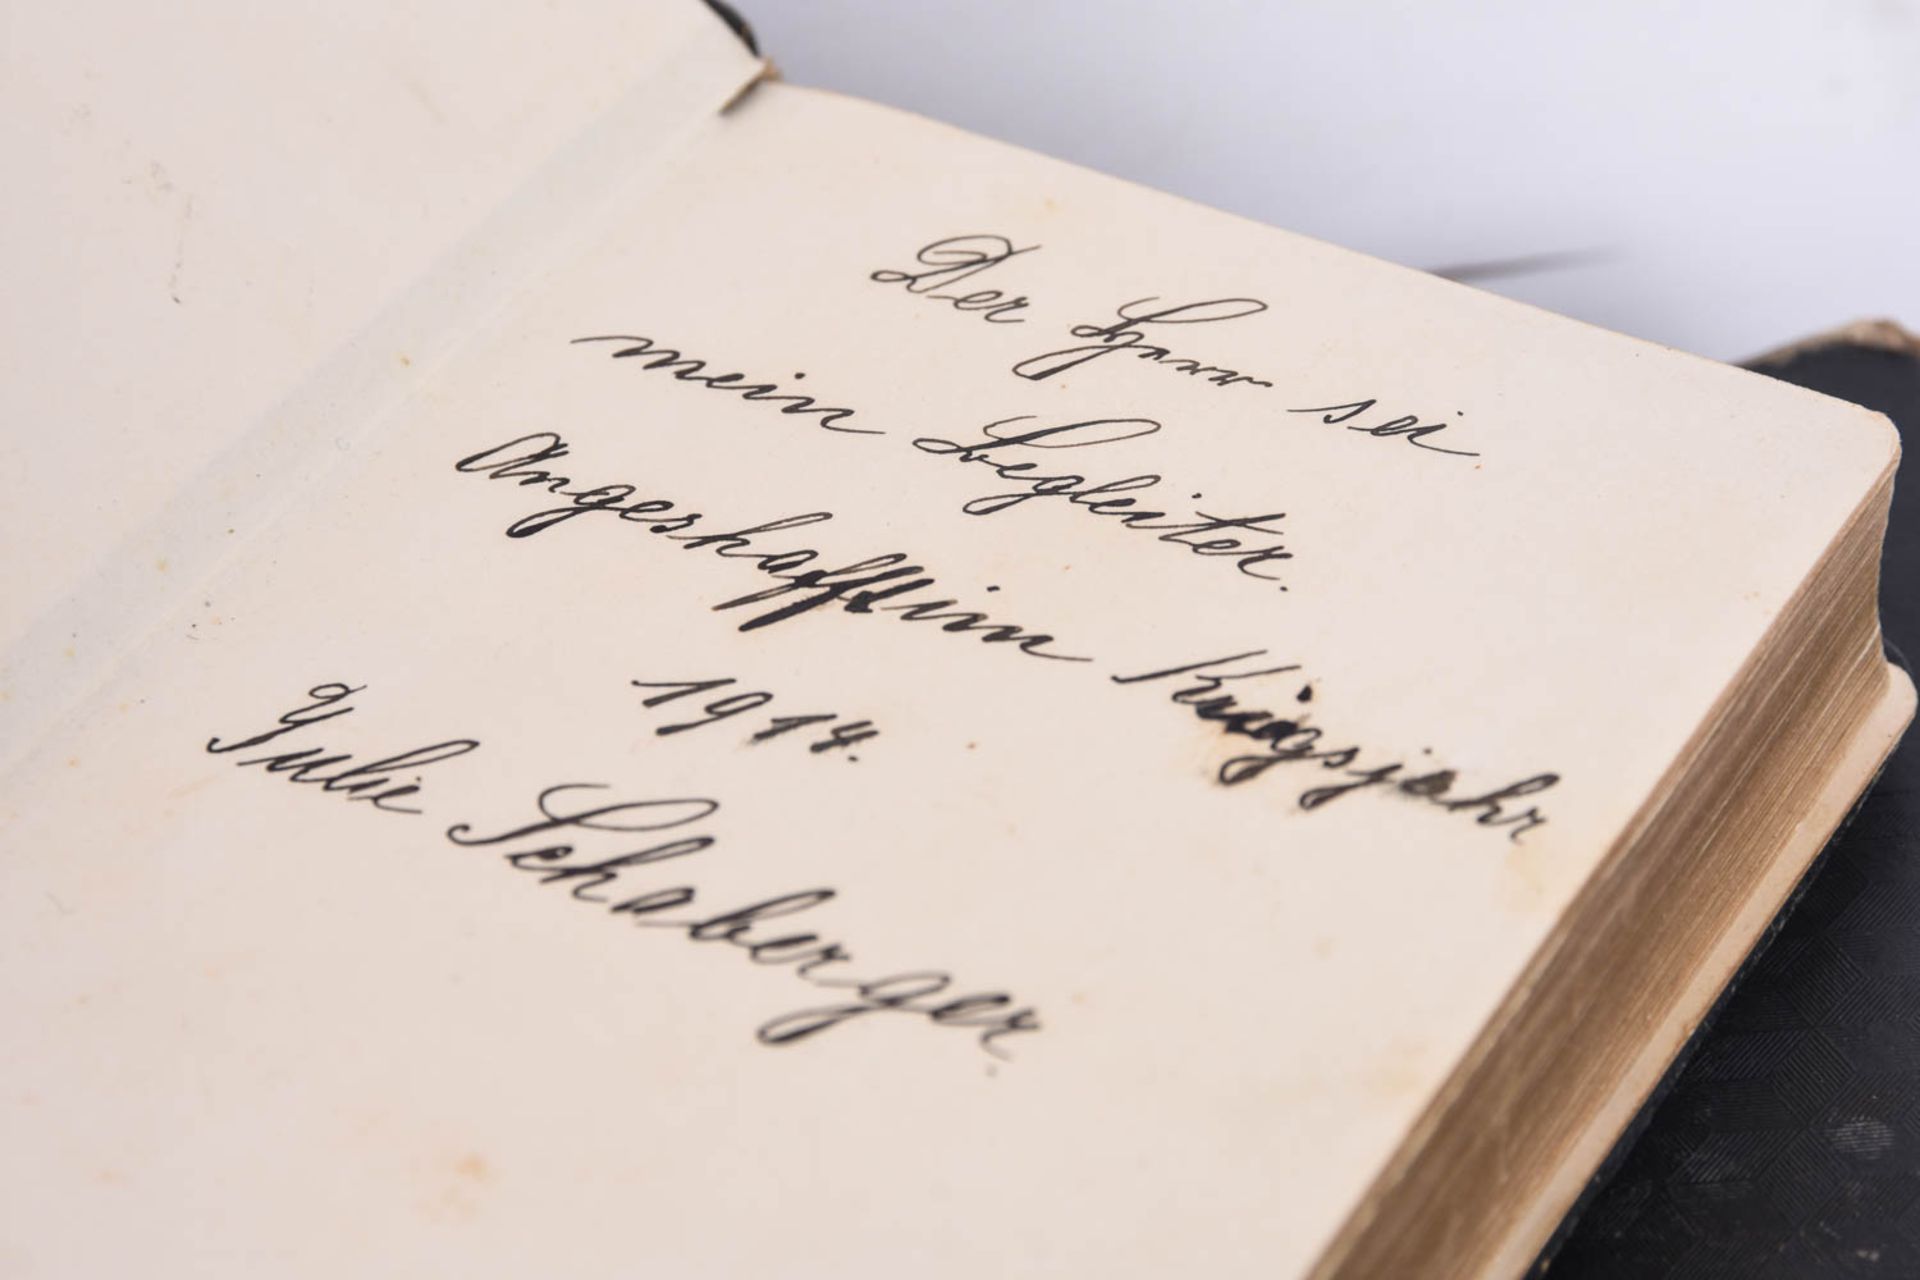 Der Herr sei
mein Begleiter.
Angeshafft im Kriegsjahr
1914.
Julie Schaberger.